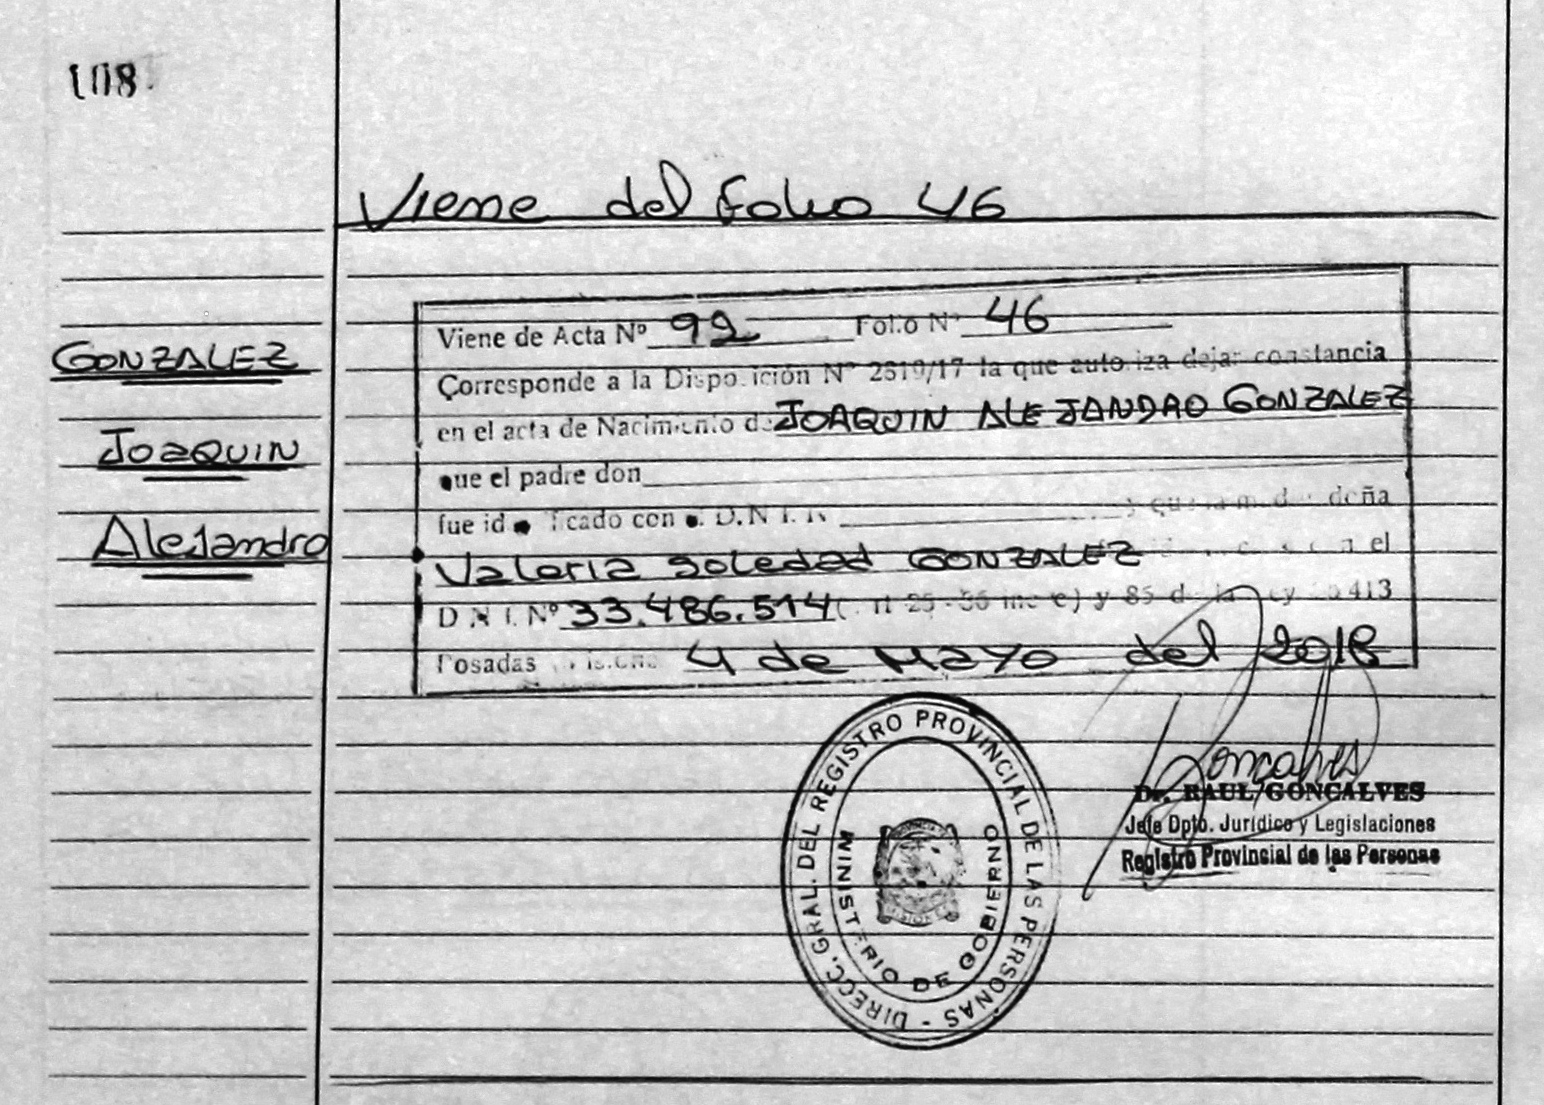 108
Viene del Folio 46
GONZALEZ
JOAQUIN
Alejandro
Viene de Acta Nº 99 Folio Nº 46
Corresponde a la Disposición Nº 2819/17 la que autoriza dejar constancia
en el acta de Nacimiento de JOAQUIN ALEJANDRO GONZALEZ
que el padre don
fue id ficado con D.N.I. N y que la madre doña
Valeria Soledad GONZALEZ con el
D.N.I. Nº 33.486.514 ( 25 - 36 inc c) y 85 de la Ley 413
Posadas Misiones 4 de Mayo del 2018
DIRECC. GRAL. DEL REGISTRO PROVINCIAL DE LAS PERSONAS -
MINISTERIO DE GOBIERNO
Goncalves
Dr. RAUL GONCALVES
Jefe Dpto. Jurídico y Legislaciones
Registro Provincial de las Personas